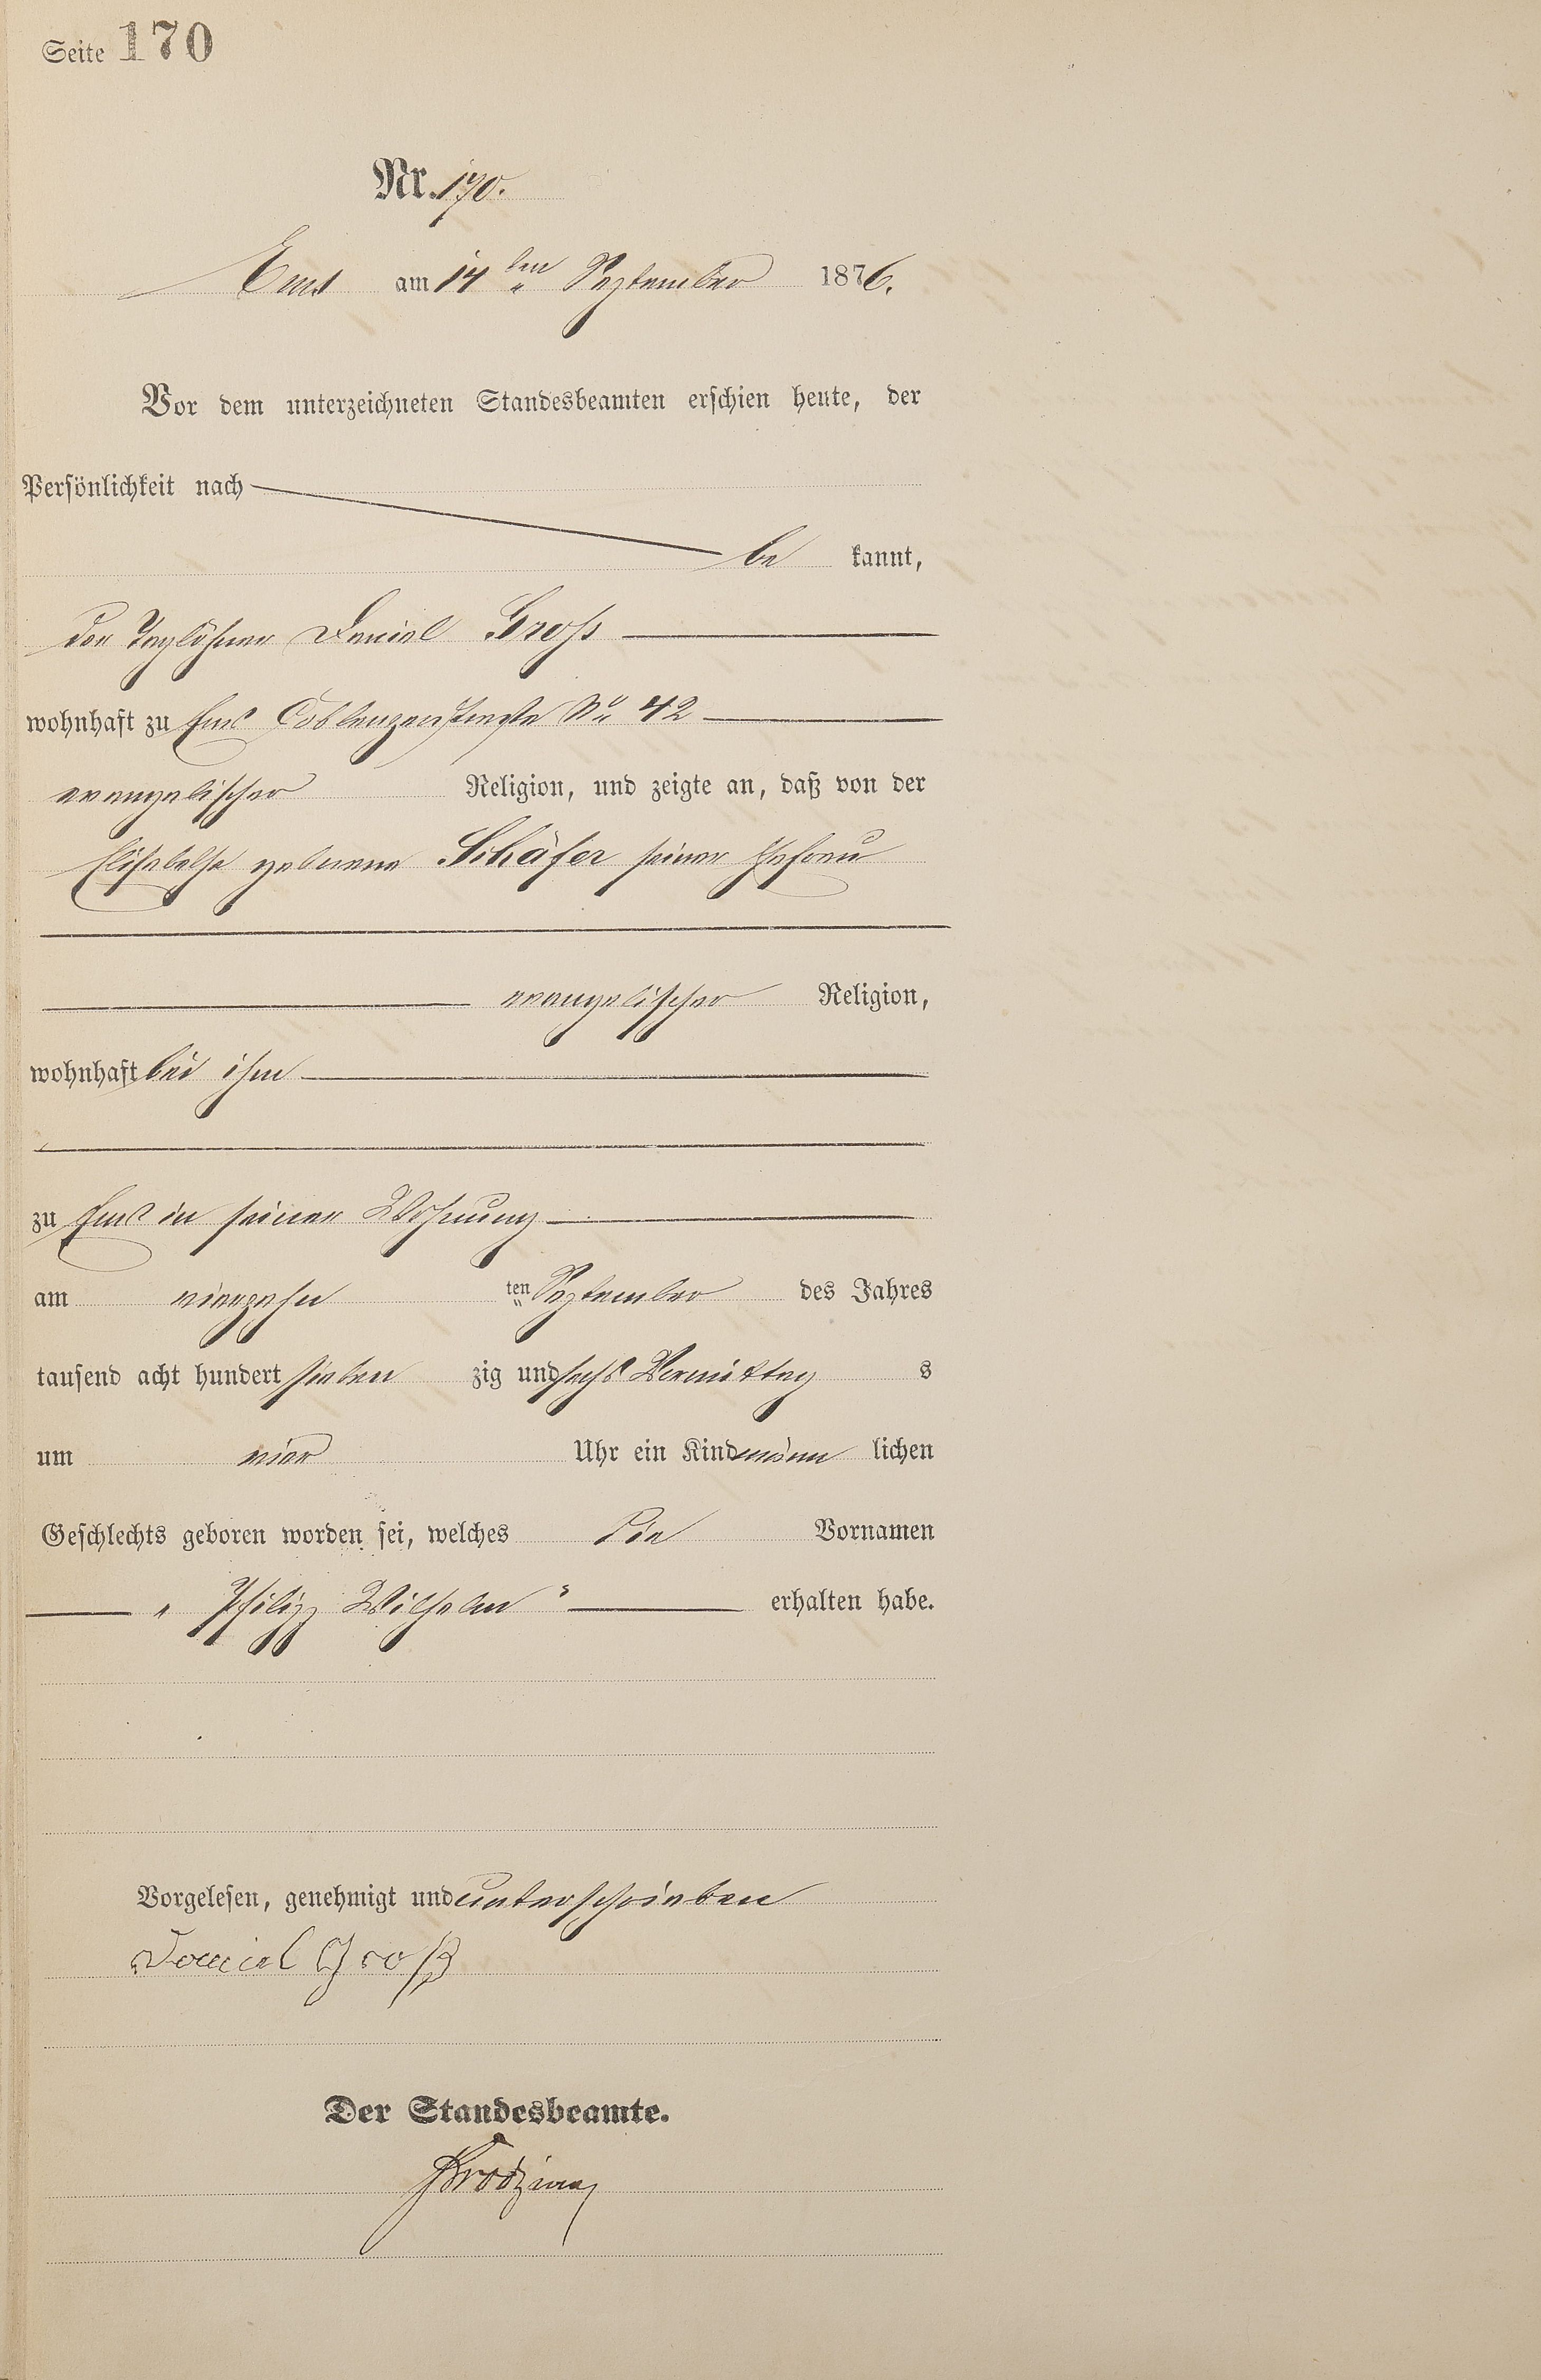 Seite 170
Nr. 170.
Ems am 14ten September 1876.
Vor dem unterzeichneten Standesbeamten erschien heute, der
Persönlichkeit nach
be kannt,
der Taglöhner Daniel Gross
wohnhaft zu Ems Coblenzerstraße No 42
evangelischer Religion, und zeigte an, daß von der
Elisabetha geborene Schäfer seiner Ehefrau
evangelischer Religion,
wohnhaft bei ihm
zu Ems in seiner Wohnung
am vierzehn ten September des Jahres
tausend acht hundert sieben zig und sechs Vormittag s
um vier Uhr ein Kind männ lichen
Geschlechts geboren worden sei, welches die Vornamen
„ Philipp Wilhelm " erhalten habe.
Vorgelesen, genehmigt und unterschrieben
Daniel Groß
Der Standesbeamte.